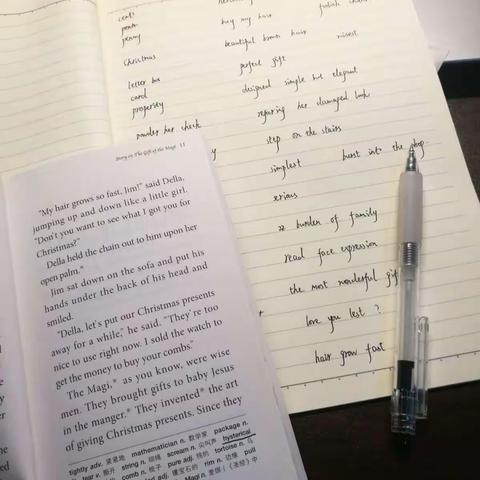 cent
penny
Christmas
letter box
card
property
powder her cheek
buy my hair
beautiful brown hair
perfect gift
designed simple but elegant
repairing her damaged look
step on the stairs
simplest
burst into the shop
burden of family
read face expression
the most wonderful gif
love you lest ?
hair grow fast
Story 01 The Gift of the Magi 11
"My hair grows so fast, Jim!" said Della,
jumping up and down like a little girl.
"Don't you want to see what I got you for
Christmas?"
Della held the chain out to him upon her
open palm.*
Jim sat down on the sofa and put his
hands under the back of his head and
smiled.
"Della, let's put our Christmas presents
away for a while," he said. "They're too
nice to use right now. I sold the watch to
get the money to buy your combs."
The Magi,* as you know, were wise
men. They brought gifts to baby Jesus
in the manger.* They invented* the art
of giving Christmas presents. Since they
tightly adv. 紧紧地 mathematician n. 数学家 package n.
tear v. 撕开 string n. 细绳 scream n. 尖叫声 hysterical
comb n. 梳子 pure adj. 纯的 tortoise n. 乌
adj. 镶宝石的 rim n. 边缘 pull
Magi n. 麦琪（《圣经》中